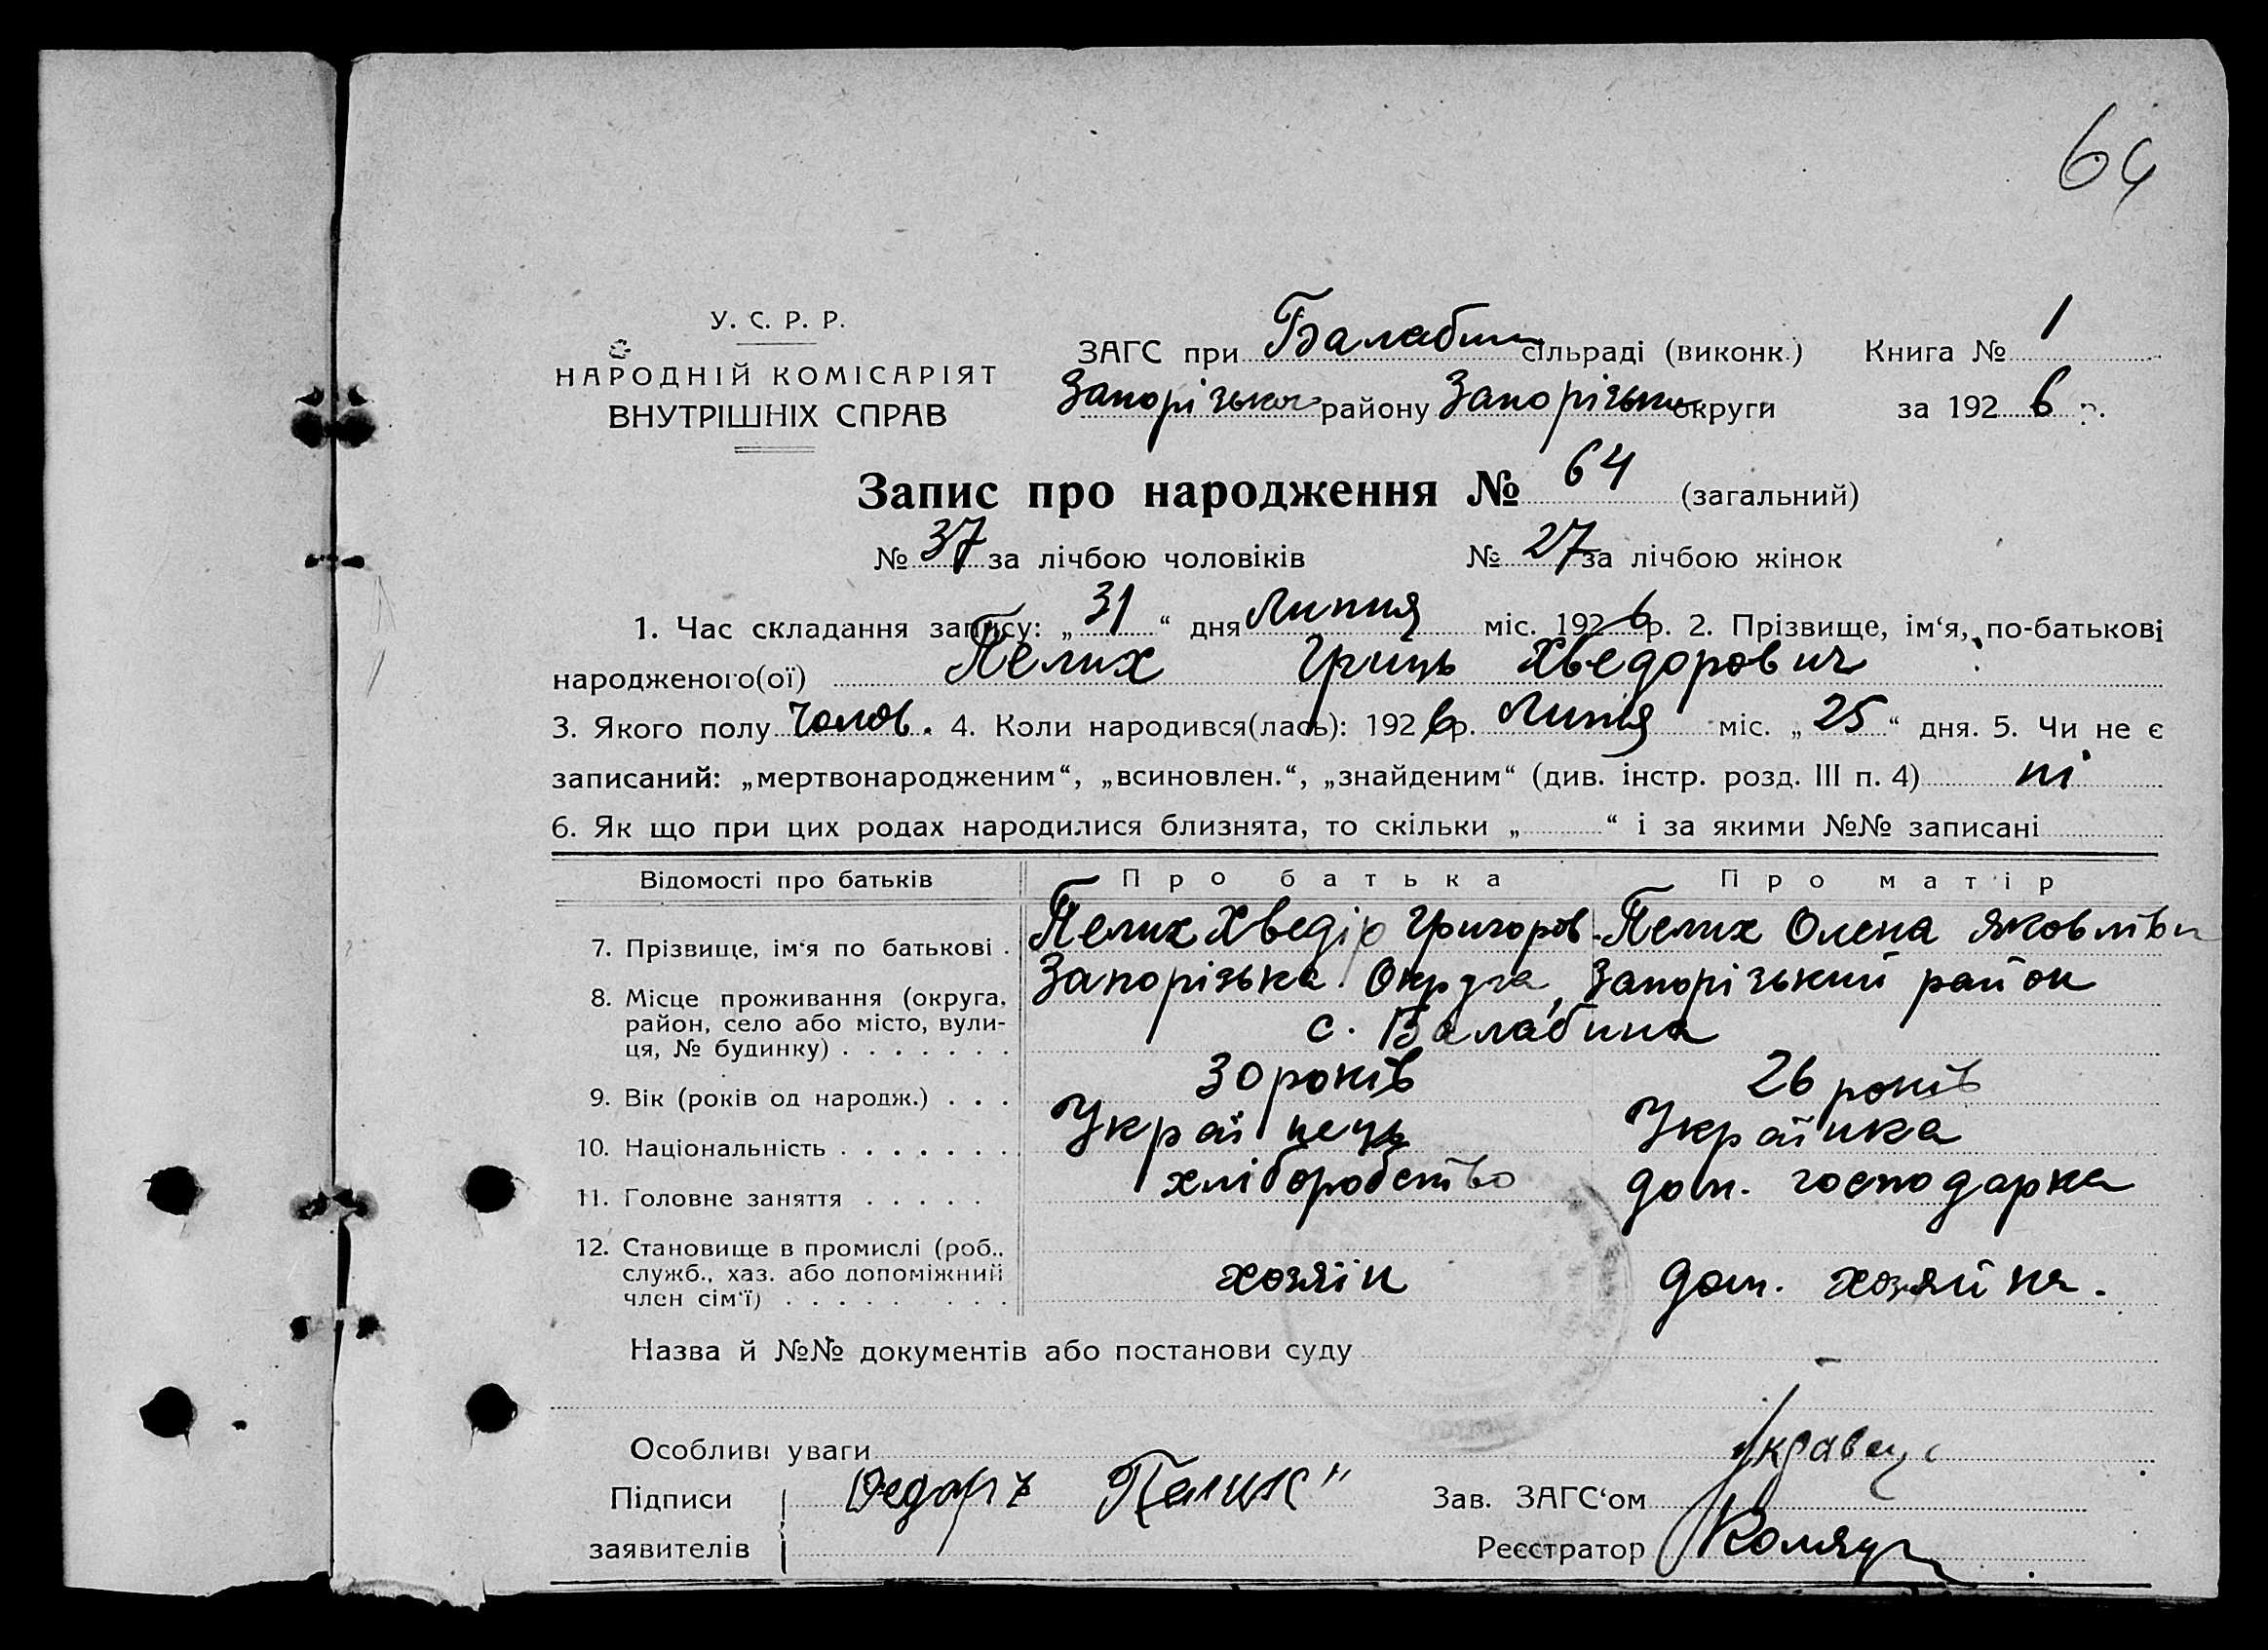 64
У. С. Р. Р.
НАРОДНІЙ КОМІСАРІЯТ
ВНУТРІШНІХ СПРАВ
ЗАГС при Балабин сільраді (виконк.) Книга № 1
Запорізьког району Запорізької округи за 1926 р.
Запис про народження № 64 (загальний)
№ 37 за лічбою чоловіків № 27 за лічбою жінок
1. Час складання запису: „31“ дня Липня міс. 1926 р. 2. Прізвище, ім‘я, по-батькові
народженого(ої) Пелих Гриць Хведорович
3. Якого полу чолов. 4. Коли народився(лась): 1926 р. Липня міс. „25“ дня. 5. Чи не є
записаний: „мертвонародженим“, „всиновлен.“, „знайденим“ (див. інстр. розд. III п. 4) ні
6. Як що при цих родах народилися близнята, то скільки „ “ і за якими №№ записані
Відомості про батьків Про батька Про матір
7. Прізвище, ім‘я по батькові . Пелих Хведір Григоров. Пелих Олена Яковлівн
8. Місце проживання (округа, Запорізька Округа, Запорізький район
район, село або місто, вули-
ця, № будинку) . . . . . . . с. Балабина
9. Вік (років од народж.) . . . 30 років 26 років
10. Національність . . . . . . . Українець Українка
11. Головне заняття . . . . . хліборобство дом. господарка
12. Становище в промислі (роб..
служб., хаз. або допоміжний хозяїн дом. хозяйка.
член сім‘ї) . . . . . . . .
Назва й №№ документів або постанови суду
Особливі уваги
Підписи Пелих Зав. ЗАГС‘ом
заявителів Реєстратор